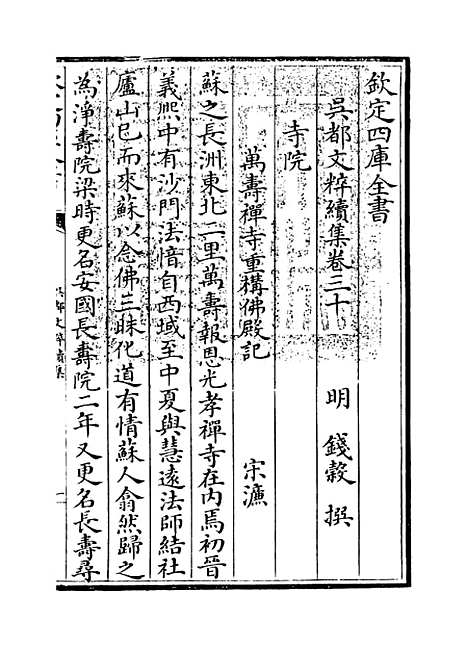 欽定四庫全書
吳都文粹續集卷三十
明 錢穀 撰
寺院
萬壽禪寺重構佛殿記 宋濂
蘇之長洲東北二里萬壽報恩光孝禪寺在內焉初晉
義熙中有沙門法愔自西域至中夏與慧遠法師結社
廬山已而來蘇以念佛三昧化道有情蘇人翕然歸之
為淨壽院梁時更名安國長壽院二年又更名長壽尋
吳都文粹續集